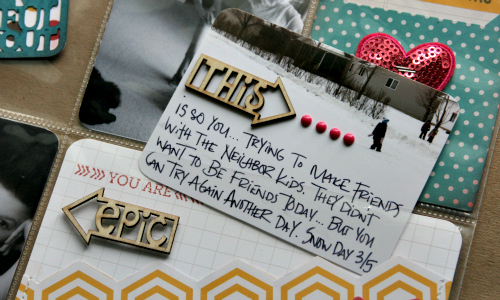 THIS
IS SO YOU.. TRYING TO MAKE FRIENDS
WITH THE NEIGHBOR KIDS. THEY DIDN'T
WANT TO BE FRIENDS TODAY.. BUT YOU
CAN TRY AGAIN ANOTHER DAY. SNOW DAY 3/5
YOU ARE
epic